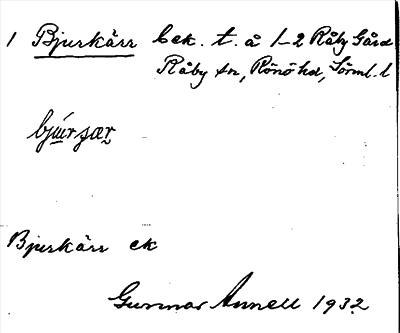 1 Bjurkärr bek. t. å 1–2 Råby Gård
Råby sn, Rönö hd, Sörml. l
Bjurkärr ek
Gunnar Annell 1932